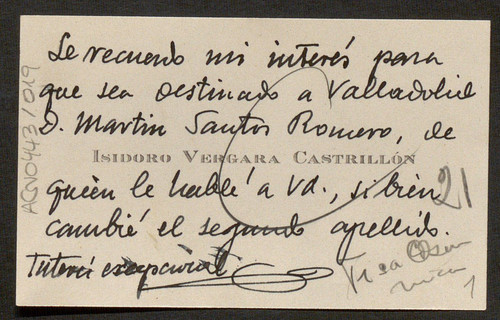 Le recuerdo mi interés para
que sea destinado a Valladolid
D. Martin Santos Romero, de
ISIDORO VERGARA CASTRILLÓN
quien le hablé a Vd., si bien
cambié el segundo apellido.
Interés excepcional
21
ACGV0443/019